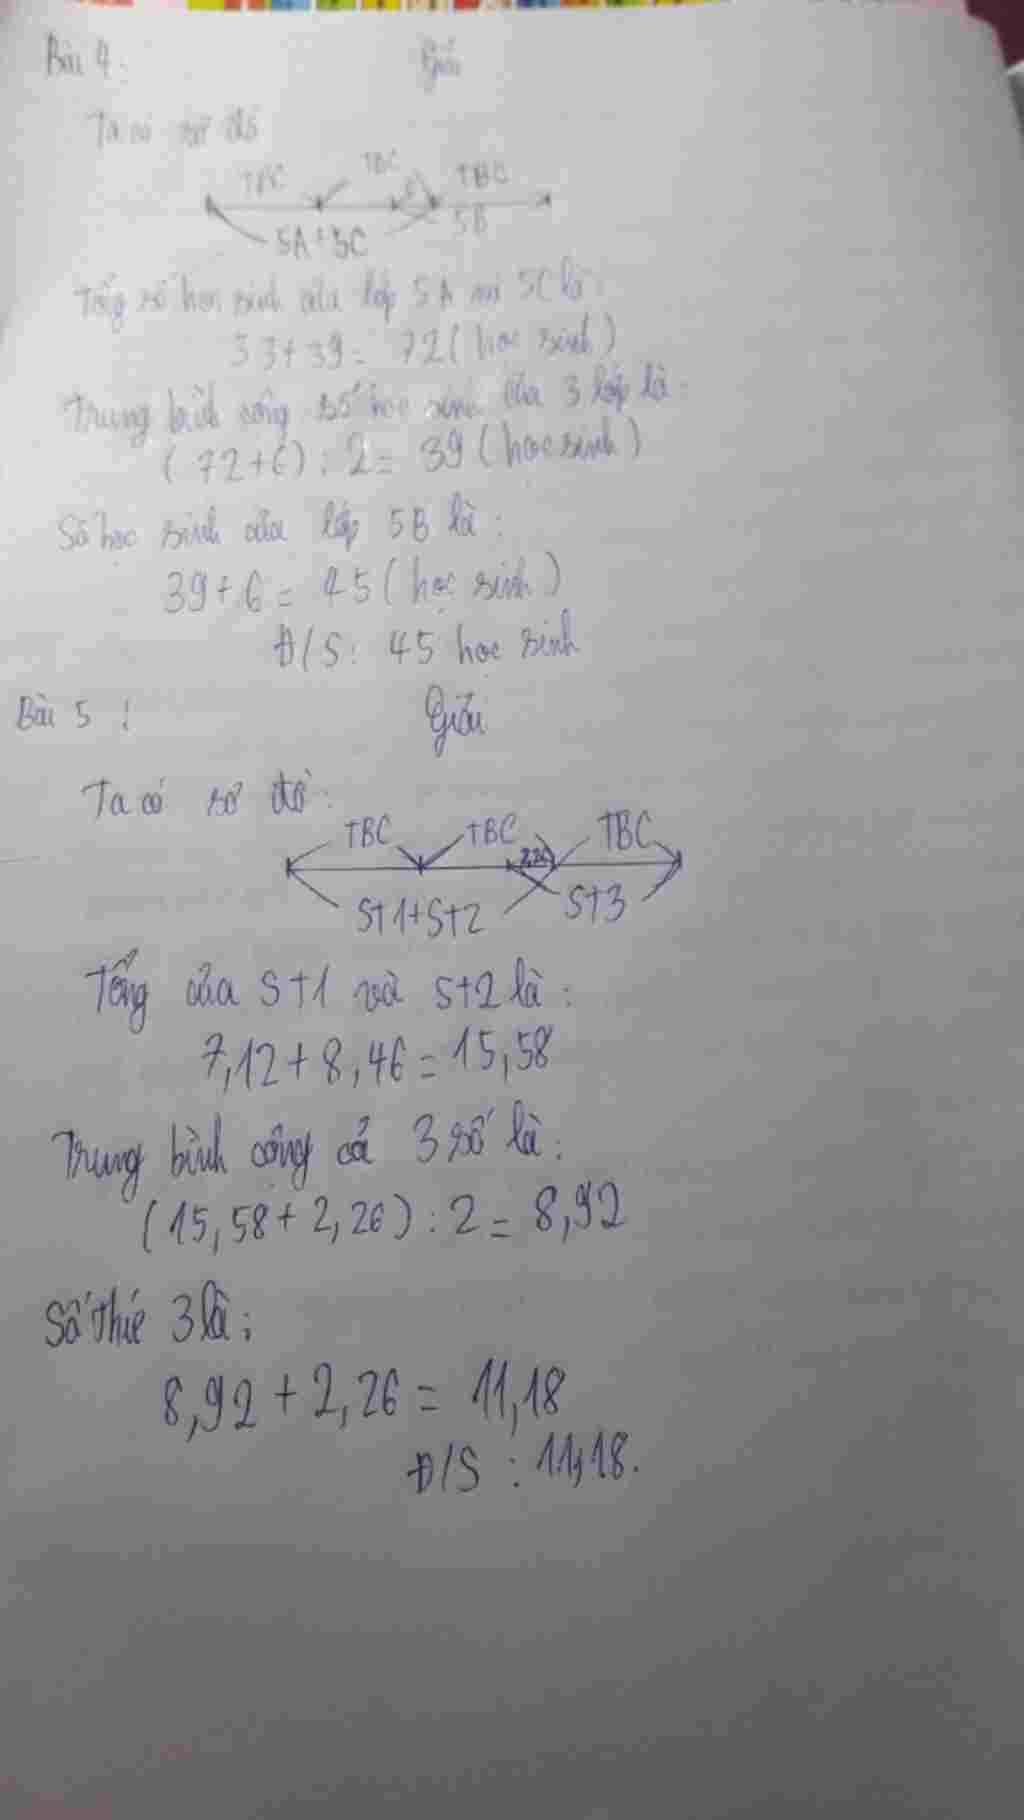 Bài 4 Giải
Ta có sơ đồ
TBC TBC 6 TBC
5A+5C 5B
Tổng số học sinh của lớp 5A và 5C là:
33+39= 72 (học sinh)
Trung bình cộng số học sinh của 3 lớp là:
(72+6):2= 39 (học sinh)
Số học sinh của lớp 5B là:
39+6= 45 (học sinh)
Đ/S: 45 học sinh
Bài 5: Giải
Ta có sơ đồ:
TBC TBC 2,26 TBC
St1+St2 St3
Tổng của St1 và St2 là:
7,12+8,46=15,58
Trung bình cộng cả 3 số là:
(15,58+2,26):2=8,92
Số thứ 3 là:
8,92+2,26= 11,18
Đ/S: 11,18.